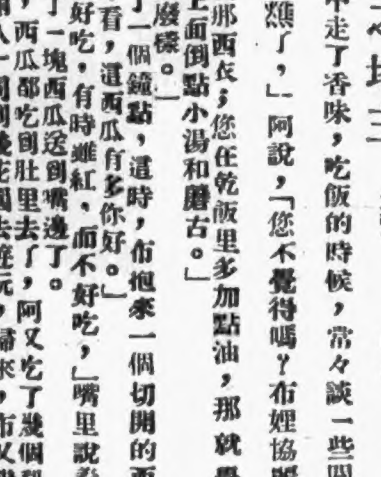 走了香味，吃飯的時候，常々談一些
了，」阿說，「您不覺得嗎？布娌協
那西衣；您在乾飯里多加點油，那就
上面倒點小湯和蘑古。」
麼樣。」
了一個鐘點，這時，布抱來一個切開的西
看，這西瓜有多你好。」
好吃，有時雖紅，而不好吃，」嘴里說着
了一塊西瓜送到嘴邊了。
，西瓜都吃到肚里去了，阿又吃了幾個